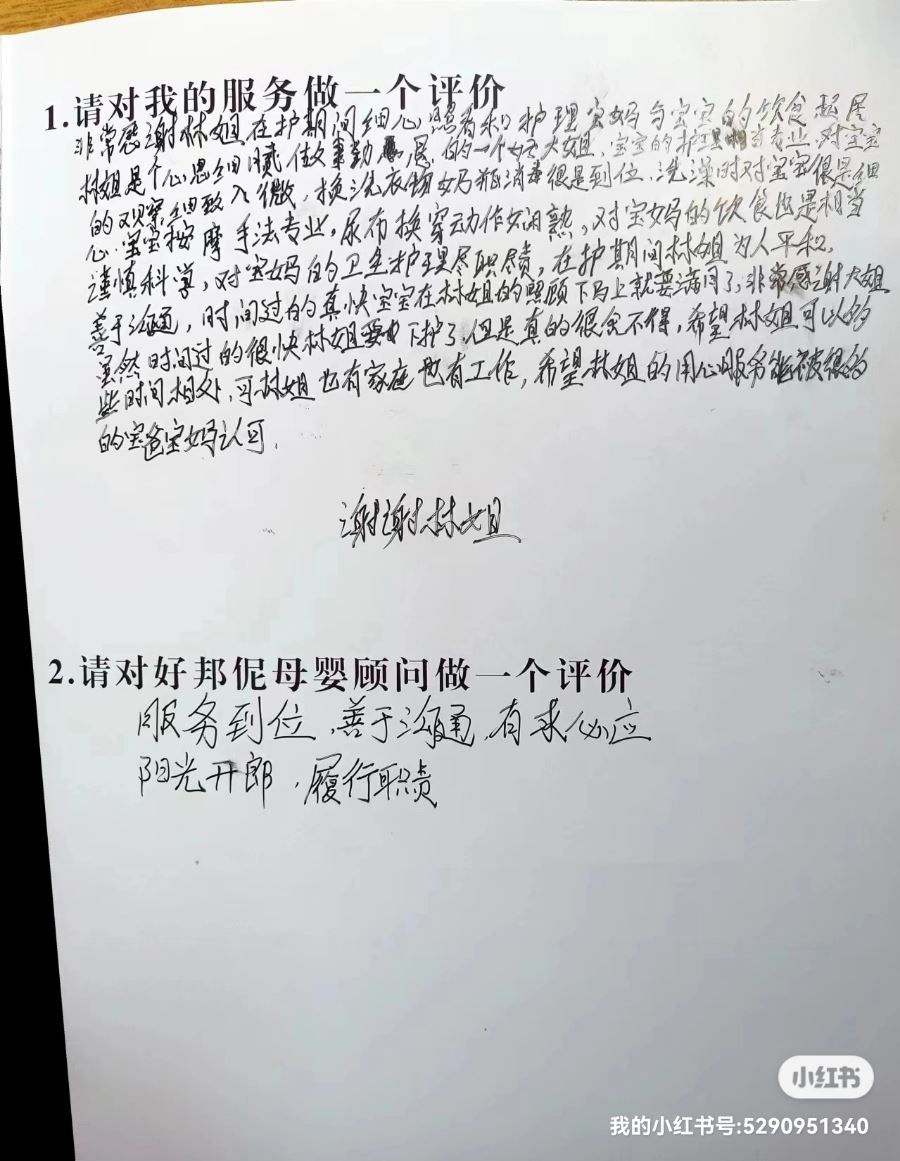 1.请对我的服务做一个评价
非常感谢林姐,在护期间细心照看和护理宝妈与宝宝的饮食起居
林姐是个心思细腻做事勤的一个好大姐,宝宝的护理相当专业,对宝宝
的观察细致入微,换洗衣物奶瓶消毒很是到位,洗澡时对宝宝很是细
心,宝宝按摩手法专业,尿布换穿动作娴熟,对宝妈的饮食也是相当
谨慎科学,对宝妈的卫生护理尽职尽责,在护期间林姐为人平和,
善于沟通,时间过的真快宝宝在林姐的照顾下马上就要满月了,非常感谢大姐
虽然时间过的很快林姐要下护了,但是真的很舍不得,希望林姐可以多
些时间相处,可林姐也有家庭也有工作,希望林姐的用心服务能被很多
的宝爸宝妈认可.
谢谢林姐
2.请对好邦伲母婴顾问做一个评价
服务到位,善于沟通,有求必应
阳光开郎,履行职责
小红书
我的小红书号:5290951340